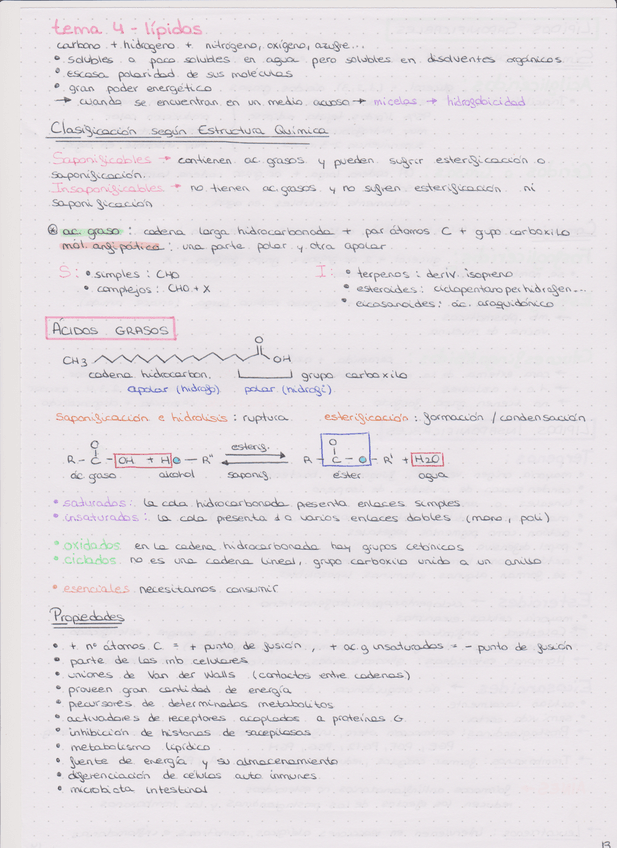 tema 4 - lípidos
carbono + hidrógeno + nitrógeno, oxígeno, azufre...
• solubles o poco solubles en agua pero solubles en disolventes orgánicos
• escasa polaridad de sus moléculas
• gran poder energético
→ cuando se encuentran en un medio acuoso → micelas → hidrofobicidad
Clasificación según Estructura Química
Saponificables → contienen ac. grasos y pueden sufrir esterificación o
saponificación.
Insaponificables → no tienen ac. grasos y no sufren esterificación ni
saponificación
ac. graso: cadena larga hidrocarbonada + par átomos C + grupo carboxilo
mol. anfipática: una parte polar y otra apolar
S: • simples: CHO
• complejos: CHO + X
I: • terpenos: deriv. isopreno
• esteroides: ciclopentanoperhidrofen...
• eicosanoides: ác. araquidónico
ÁCIDOS GRASOS
O
CH3 OH
cadena hidrocarbon. grupo carboxilo
apolar (hidrófo) polar (hidrofi)
saponificación e hidrolisis: ruptura esterificación: formación / condensación
O esterif. O
R - C - OH + HO - R'' R - C - O - R' + H2O
ác. graso alcohol saponif. éster agua
• saturados: la cola hidrocarbonada presenta enlaces simples
• insaturados: la cola presenta 1 o varios enlaces dobles (mono, poli)
• oxidados en la cadena hidrocarbonada hay grupos cetónicos
• ciclados no es una cadena lineal, grupo carboxilo unido a un anillo
• esenciales necesitamos consumir
Propiedades
• + nº átomos C = + punto de fusión, + ac. g. insaturados = - punto de fusión
• parte de las mb celulares
• uniones de Van der Walls (contactos entre cadenas)
• proveen gran cantidad de energía
• precursores de determinados metabolitos
• activadores de receptores acoplados a proteínas G
• inhibición de histonas
• metabolismo lipídico
• fuente de energía y su almacenamiento
• diferenciación de células auto inmunes
• microbiota intestinal
13